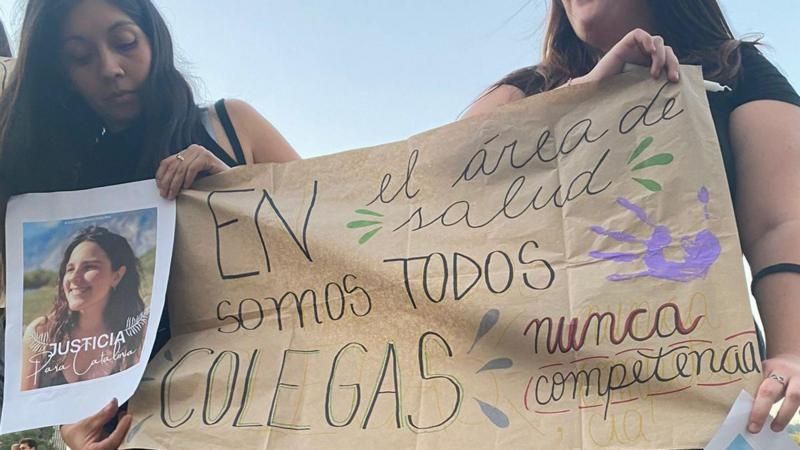 EN el área de
salud
SOMOS TODOS
COLEGAS nunca
competencia
JUSTICIA
Para Catalina